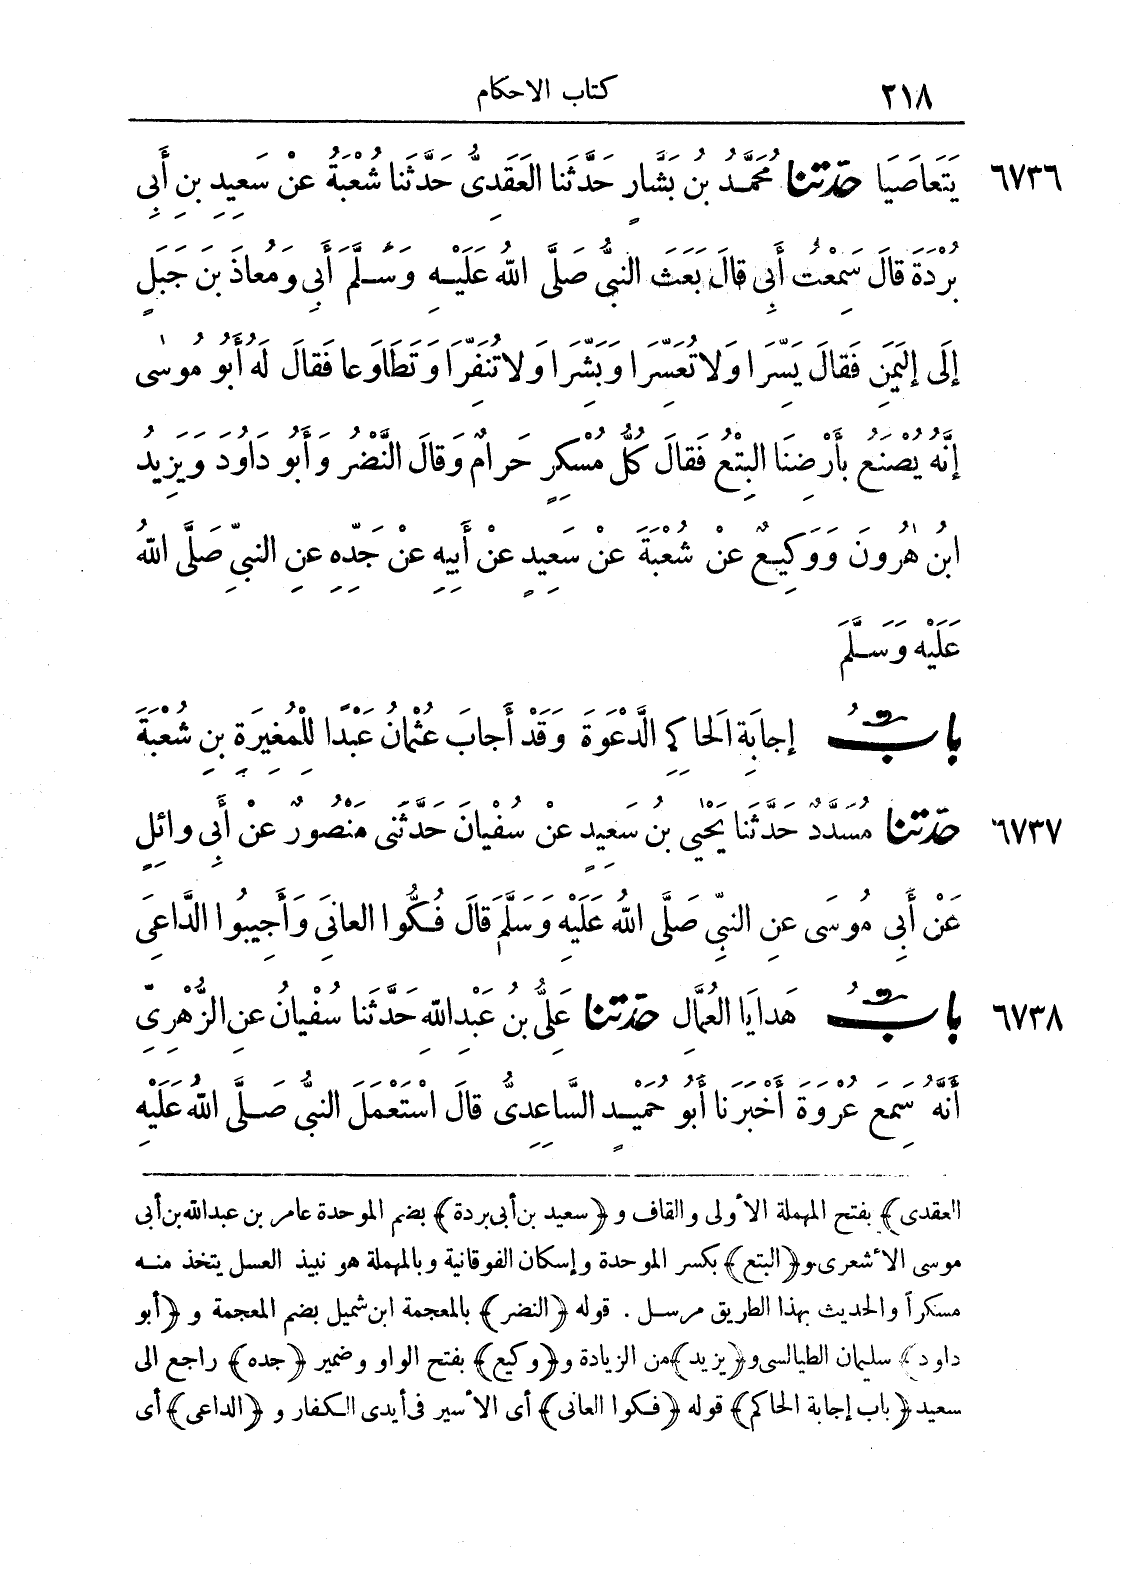 ٢١٨ كتاب الاحكام
٦٧٣٦ يَتَعَاصَيَا حدثنا مُحَمَّدُ بنُ بَشَّارٍ حَدَّثَنا العَقَدِىُّ حَدَّثَنا شُعْبَةُ عَنْ سَعِيدِ بنِ أَبِى
بُرْدَةَ قالَ سَمِعْتُ أَبِى قالَ بَعَثَ النبىُّ صَلَّى اللهُ عَلَيْهِ وَسَلَّمَ أَبِى ومُعاذَ بنَ جَبَلٍ
إِلَى اليَمَنِ فَقالَ يَسِّرَا وَلا تُعَسِّرَا وَبَشِّرَا وَلا تُنَفِّرَا وَتَطَاوَعا فَقالَ لَهُ أَبُو مُوسٰى
إِنَّهُ يُصْنَعُ بأَرْضِنَا البِتْعُ فَقالَ كُلُّ مُسْكِرٍ حَرامٌ وَقالَ النَّضْرُ وَأَبُو دَاوُدَ وَيَزِيدُ
ابنُ هٰرُونَ وَوَكِيعٌ عَنْ شُعْبَةَ عَنْ سَعِيدٍ عَنْ أَبِيهِ عَنْ جَدِّهِ عنِ النبىِّ صَلَّى اللهُ
عَلَيْهِ وَسَلَّمَ
بابُ إِجابَةِ الحَاكِمِ الدَّعْوَةَ وَقَدْ أَجابَ عُثْمانُ عَبْدًا لِلْمُغِيرَةِ بنِ شُعْبَةَ
٦٧٣٧ حدثنا مُسَدَّدٌ حَدَّثَنا يَحْيٰى بنُ سَعِيدٍ عنْ سُفْيانَ حَدَّثَنى مَنْصُورٌ عنْ أَبِى وائِلٍ
عَنْ أَبِى مُوسَى عنِ النبىِّ صَلَّى اللهُ عَلَيْهِ وَسَلَّمَ قالَ فُكُّوا العانِىَ وَأَجِيبُوا الدَّاعِىَ
٦٧٣٨ بابُ هَدايَا العُمَّالِ حدثنا عَلِىُّ بنُ عَبْدِ اللهِ حَدَّثَنا سُفْيانُ عنِ الزُّهْرِىِّ
أَنَّهُ سَمِعَ عُرْوَةَ أَخْبَرَنا أَبُو حُمَيْدٍ السَّاعِدِىُّ قالَ اسْتَعْمَلَ النبىُّ صَلَّى اللهُ عَلَيْهِ
العقدى﴾ بفتح المهملة الأولى والقاف و ﴿سعيد بن أبى بردة﴾ بضم الموحدة عامر بن عبد الله بن أبى
موسى الأشعرى و﴿البتع﴾ بكسر الموحدة وإسكان الفوقانية وبالمهملة هو نبيذ العسل يتخذ منه
مسكراً والحديث بهذا الطريق مرسل . قوله ﴿النضر﴾ بالمعجمة ابن شميل بضم المعجمة و ﴿أبو
داود﴾ سليمان الطيالسى و﴿يزيد﴾ من الزيادة و﴿وكيع﴾ بفتح الواو وضمير ﴿جده﴾ راجع الى
سعيد ﴿باب إجابة الحاكم﴾ قوله ﴿فكوا العانى﴾ أى الأسير فى أيدى الكفار و ﴿الداعى﴾ أى